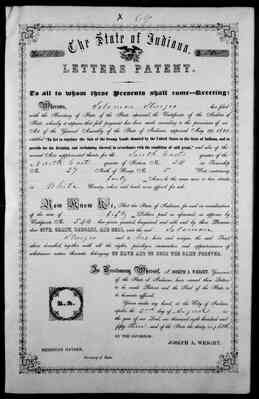 X 69
The State of Indiana.
LETTERS PATENT.
To all to whom these Presents shall come—Greeting:
Whereas, Solomon Sturges has filed
with the Secretary of State of the State aforesaid, the Certificate of the Auditor of
State, whereby it appears that full payment has been made according to the provisions of an
Act of the General Assembly of the State of Indiana, approved May 29, 1852,
entitled "An Act to regulate the Sale of the Swamp Lands donated by the United States to the State of Indiana, and to
provide for the draining and reclaiming thereof, in accordance with the condition of said grant," and also of the
several Acts supplemental thereto for the South East quarter of the
North East quarter of Section No. 24 Township
No. 27 North of Range No. 5 West containing
forty Acres
White
Now Know Ye, That the State of Indiana for and in consideration
of the sum of Fifty Dollars paid as aforesaid, as appears by
Certificate No.
DOES GIVE, GRANT, BARGAIN, AND SELL, unto the said Solomon
Sturges and to his heirs and assigns, the said Tract
above described, together with all the rights, privileges, immunities and appurtenances of
whatsoever nature thereunto belonging, TO HAVE AND TO HOLD THE SAME FOREVER.
In Testimony Whereof, I, JOSEPH A. WRIGHT, Governor
of the State of Indiana, have caused these Letters
to be made Patent and the Seal of the State to
be hereunto affixed.
Given under my hand, at the City of Indianapolis,
the day of August in the
year of our Lord, one thousand eight hundred and
fifty Three and of the State the thirty
L.S.
BY THE GOVERNOR: JOSEPH A. WRIGHT.
Secretary of State.